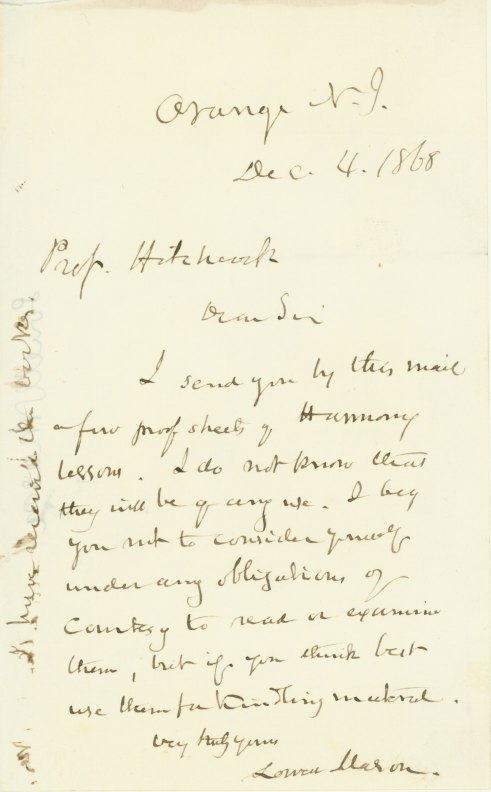 Orange N.J.
Dec. 4. 1868
Prof. Hitchcock
Dear Sir
I send you by this mail
a few proof sheets of Harmony
lessons. I do not know that
they will be of any use. I beg
you not to consider yourself
under any obligations of
Courtesy to read or examine
them, but if you think best
use them for Kindling material.
Very truly yours
Lowell Mason.
I have received the books.